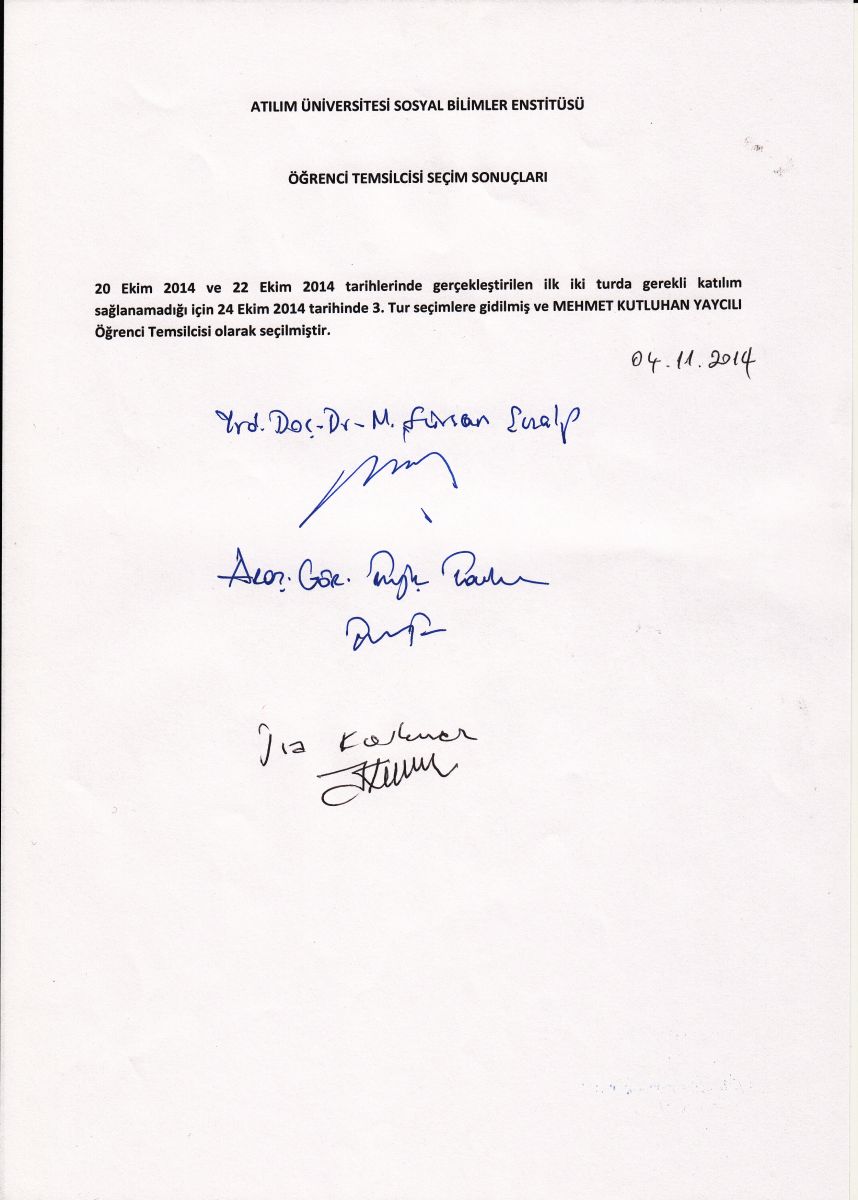 ATILIM ÜNİVERSİTESİ SOSYAL BİLİMLER ENSTİTÜSÜ
ÖĞRENCİ TEMSİLCİSİ SEÇİM SONUÇLARI
20 Ekim 2014 ve 22 Ekim 2014 tarihlerinde gerçekleştirilen ilk iki turda gerekli katılım
sağlanamadığı için 24 Ekim 2014 tarihinde 3. Tur seçimlere gidilmiş ve MEHMET KUTLUHAN YAYCILI
Öğrenci Temsilcisi olarak seçilmiştir.
04.11.2014
Yrd. Doç. Dr. M. Gürsan
Araş. Gör.